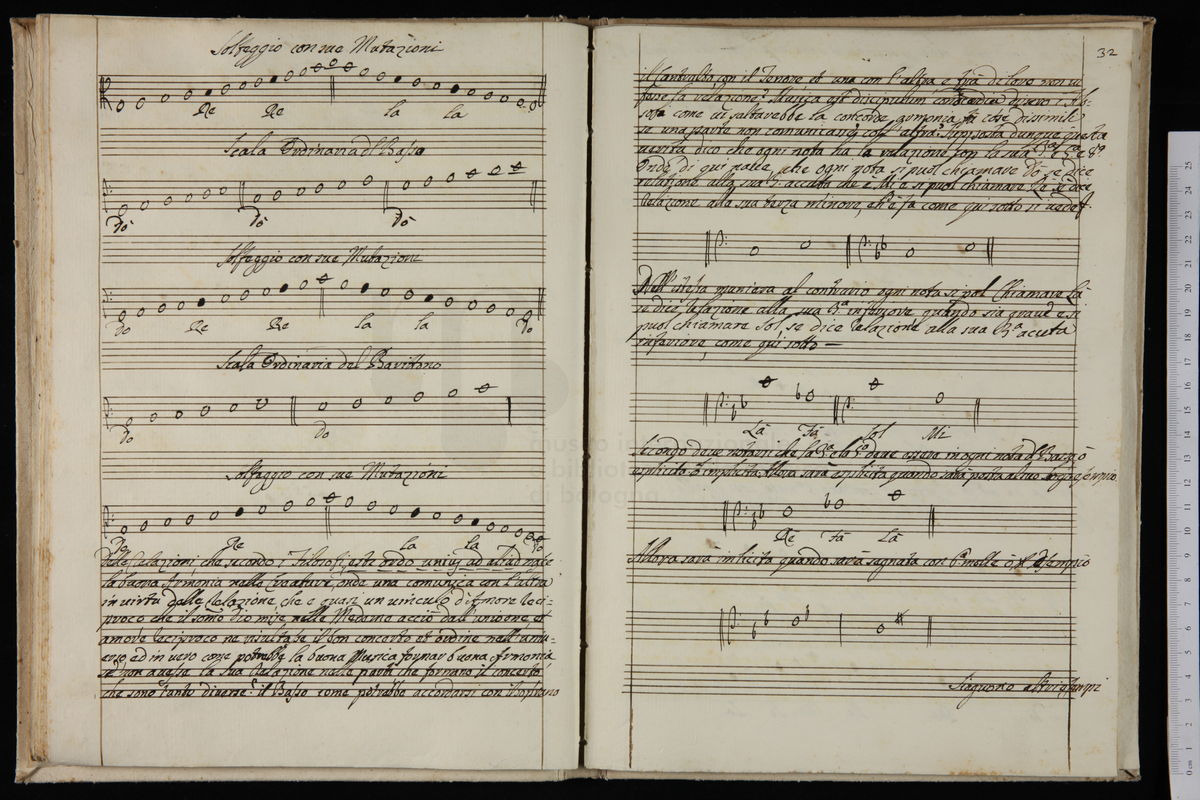 Solfeggio con sue Mutazioni
Re Re la la
Scala Ordinaria del Basso
Do Do Do
Solfeggio con sue Mutazioni
Do Re Re la la Do
Scala Ordinaria del Baritono
Do Do
Solfeggio con sue Mutazioni
Do Re la la Do
Delle Relazioni che secondo i Filosofi, est ordo unius ad aliud nasce
la buona Armonia nelle Creature, onde una comunica con l'altra
in virtù della Relazione, che è quasi un vincolo d'Amore reci=
proco che il sommo Dio mise nelle Medeme acciò dall'unione, et
amore reciproco ne risultasse il bon concerto et ordine nell'univ=
erso, ed in vero come potrebbe la buona Musica formar buona Armonia
se non avesse la sua Relazione nelle parti che formano il concerto
che sono tanto diverse? il Basso come potrebbe accordarsi con il Soprano
32
il Contralto con il Tenore et una con l'altra e frà di loro non vi
fosse la relazione? Musica est
come la concorde armonia di cose dissimili
se una parte non comunicasse coll'altra? Supposta dunque questa
verità dico che ogni nota ha la relazione con la sua 3ª 5ª e 8ª
Onde di qui nasce, che ogni nota si puol chiamare Do, se dice
relazione alla sua 3ª acuta che è Mi e si puol chiamare Re se dice
Relazione alla sua terza minore, ch'è fa come qui sotto si vede
Nell'istessa maniera al contrario ogni nota si pol Chiamare La
se dice relazione alla sua 3ª inferiore quando sia grave e si
puol chiamare Sol, se dice relazione alla sua 3ª acuta
inferiore, come qui sotto —
La Fa Sol Mi
che la 3ª e la 5ª deve essere in ogni nota del Basso ò
esplicita ò implicita. Allora sarà esplicita quando sarà posta
Re Fa La
Allora sarà implicita quando sarà segnata con b molle ò # Esempio
Sieguono altri Esempi
museo internazionale
e biblioteca
di bologna